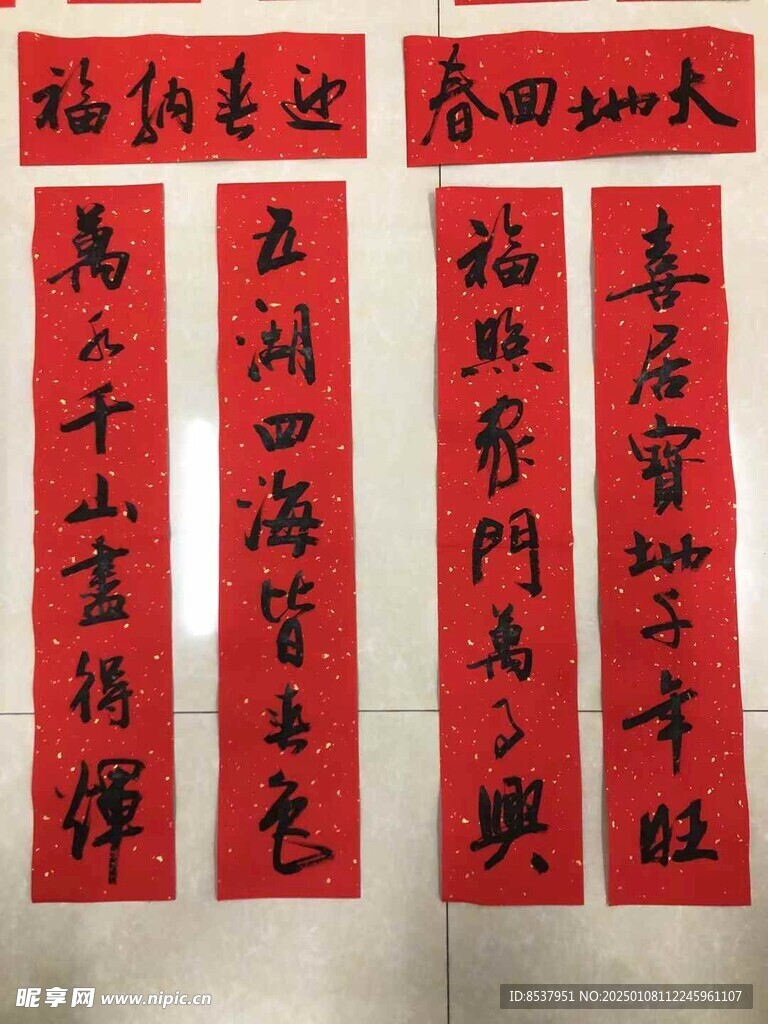 大地回春
喜居寶地千年旺
福照家門萬事興
迎春納福
五湖四海皆春色
萬水千山盡得輝
昵享网 www.nipic.cn
ID:8537951 NO:20250108112245961107